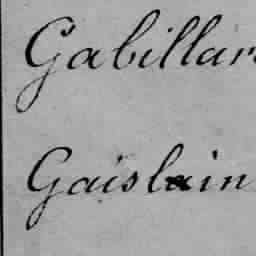 Gabillar
Gaislain